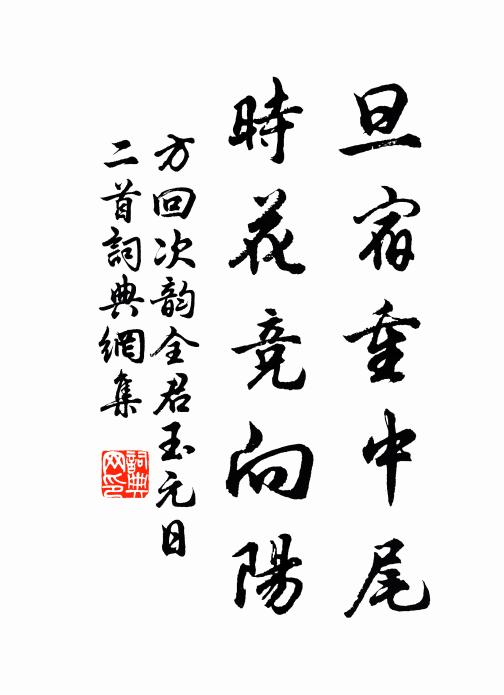 旦宿重中尾
時花竞向陽
方回次韵全君玉元日
二首詞典網集
詞典网印